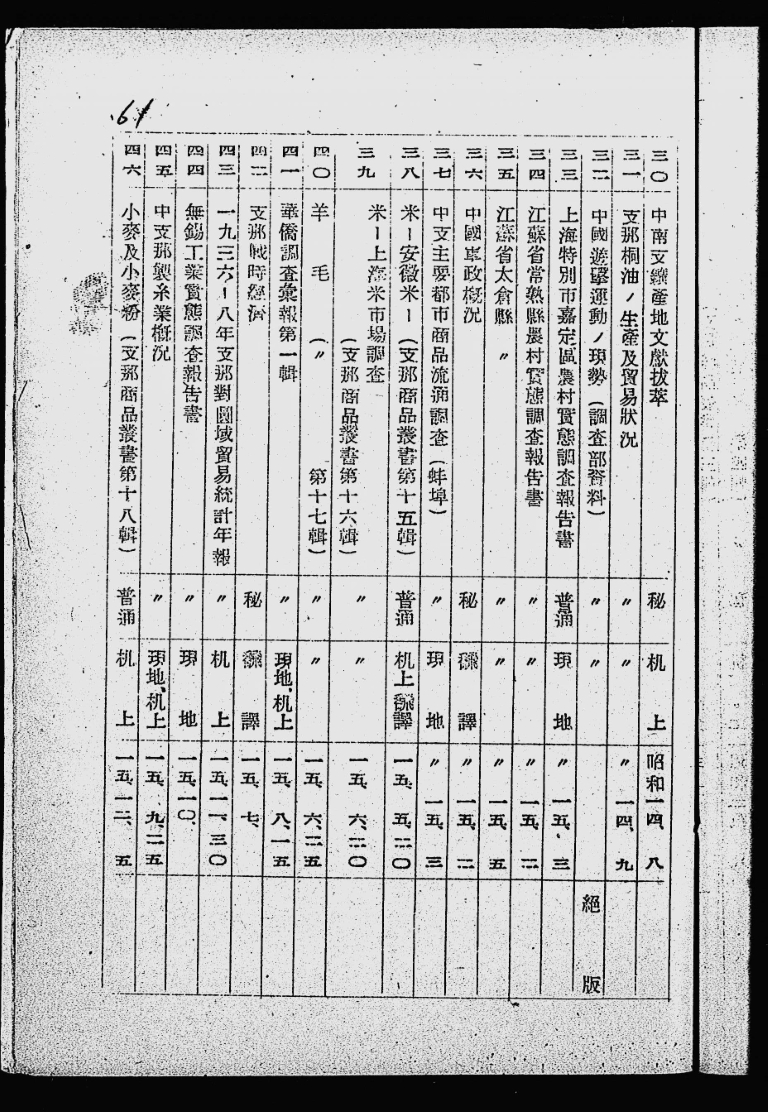 61
三〇 中南支鑛產地文獻拔萃 秘 机上 昭和一四、八
三一 支那桐油ノ生產及貿易狀況 〃 〃 〃一四、九
三二 中國遊擊運動ノ現勢（調査部資料） 〃 〃 絕版
三三 上海特別市嘉定區農村實態調査報告書 普通 現地 〃一五、三
三四 江蘇省常熟縣農村實態調査報告書 〃 〃 〃一五、二
三五 江蘇省太倉縣 〃 〃 〃 〃一五、五
三六 中國軍政槪況 秘 飜譯 〃一五、二
三七 中支主要都市商品流通調査（蚌埠） 〃 現地 〃一五、三
三八 米ー安徽米ー（支那商品叢書第十五輯） 普通 机上飜譯 一五、五、二〇
三九 米ー上海米市場調査
（支那商品叢書第十六輯） 〃 〃 一五、六、二〇
四〇 羊毛（〃 第十七輯） 〃 〃 一五、六、二五
四一 華僑調査彙報第一輯 〃 現地、机上 一五、八、一五
四二 支那戰時經濟 秘 飜譯 一五、七、
四三 一九三六ー八年支那對圓域貿易統計年報 〃 机上 一五、一一、三〇
四四 無錫工業實態調査報告書 〃 現地 一五、一〇、
四五 中支那製糸業槪況 〃 現地、机上 一五、九、二五
四六 小麥及小麥粉（支那商品叢書第十八輯） 普通 机上 一五、一二、五